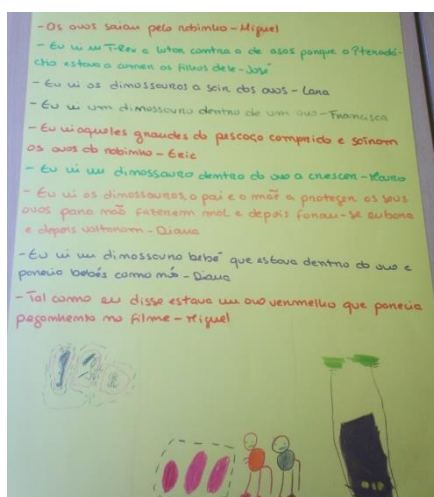 - Os ovos saiam pelo rabinho - Miguel
- Eu vi um T-Rex a lutar contra o de asas porque o Pterodá-
ctilo estava a comer os filhos dele - José
- Eu vi os dinossauros a sair dos ovos - Lara
- Eu vi um dinossauro dentro de um ovo - Francisca
- Eu vi aqueles grandes do pescoço comprido e saíram
os ovos do rabinho - Eric
- Eu vi um dinossauro dentro do ovo a crescer -
- Eu vi os dinossauros, o pai e a mãe a proteger os seus
ovos para não fazerem mal e depois foram-se embora
e depois voltaram - Diana
- Eu vi um dinossauro bebé que estava dentro do ovo e
parecia bebés como nós - Diana
- Tal como eu disse estava um ovo vermelho que parecia
peganhento no filme - Miguel